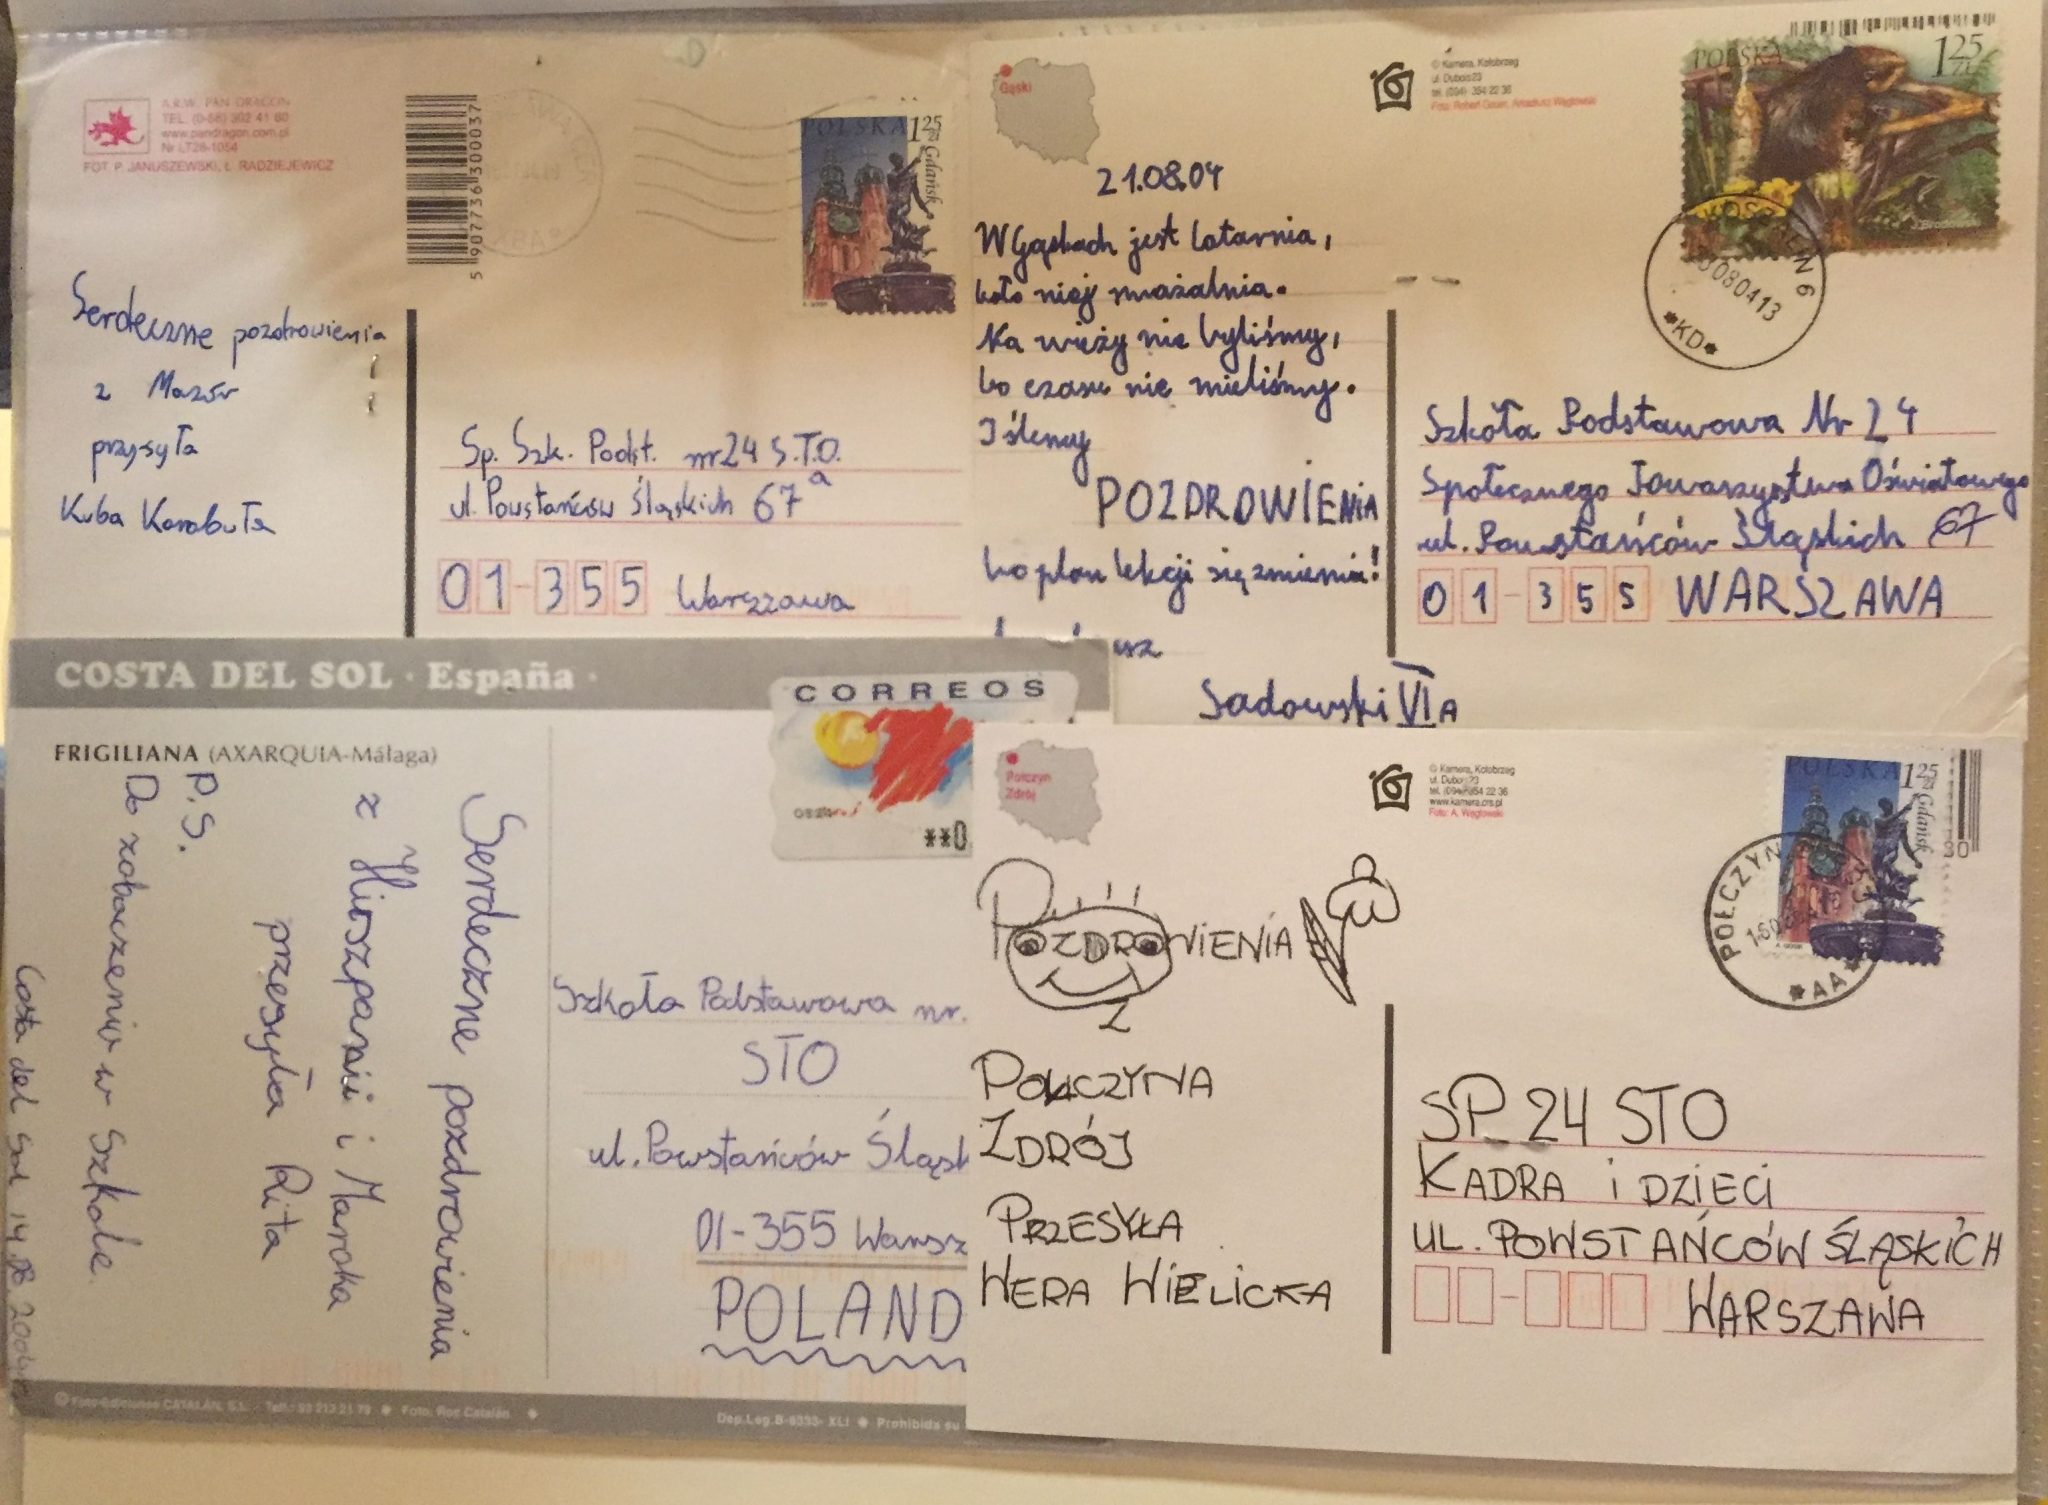 A.R.W. PAN DRAGON
TEL. (0-58) 302 41 60
www.pandragon.com.pl
Nr LT28-1054
FOT. P. JANUSZEWSKI, Ł. RADZIEJEWICZ
5 907736 300037
POLSKA 1 25 ZŁ
Gdańsk
Serdeczne pozdrowienia
z Mazur
przysyła
Kuba Karabuła
Sp. Szk. Podst. nr 24 S.T.O.
ul. Powstańców Śląskich 67a
01-355 Warszawa
Gąski
© Kamera, Kołobrzeg
ul. Dubois 23
tel. (094) 354 22 36
POLSKA 1 25 ZŁ
21.08.04
W Gąskach jest latarnia,
koło niej smażalnia.
Na wieży nie byliśmy,
bo czasu nie mieliśmy.
I ślemy
POZDROWIENIA
bo plan lekcji się zmienia!
Sadowski VI A
Szkoła Podstawowa Nr 24
Społecznego Towarzystwa Oświatowego
ul. Powstańców Śląskich 67
01-355 WARSZAWA
COSTA DEL SOL · España ·
FRIGILIANA (AXARQUIA-Málaga)
CORREOS
**0
Serdeczne pozdrowienia
z Hiszpanii i Maroka
przesyła Rita
P.S.
Do zobaczenia w Szkole.
Costa del Sol 14.08.2004
Szkoła Podstawowa nr.
STO
ul. Powstańców Śląsk
01-355 Warsz
POLAND
Foto: Roc Catalán
Dep. Leg. B-6333-XLI Prohibida su
Połczyn
Zdrój
© Kamera, Kołobrzeg
ul. Dubois 23
tel. (094) 354 22 36
www.kamera.ors.pl
Foto: A. Węglowski
POLSKA 1 25 ZŁ
Gdańsk
30
POŁCZYN
*AA*
POZDROWIENIA
Z
POŁCZYNA
ZDRÓJ
PRZESYŁA
WERA WIELICKA
SP 24 STO
KADRA i DZIECI
UL. POWSTAŃCÓW ŚLĄSKICH
WARSZAWA